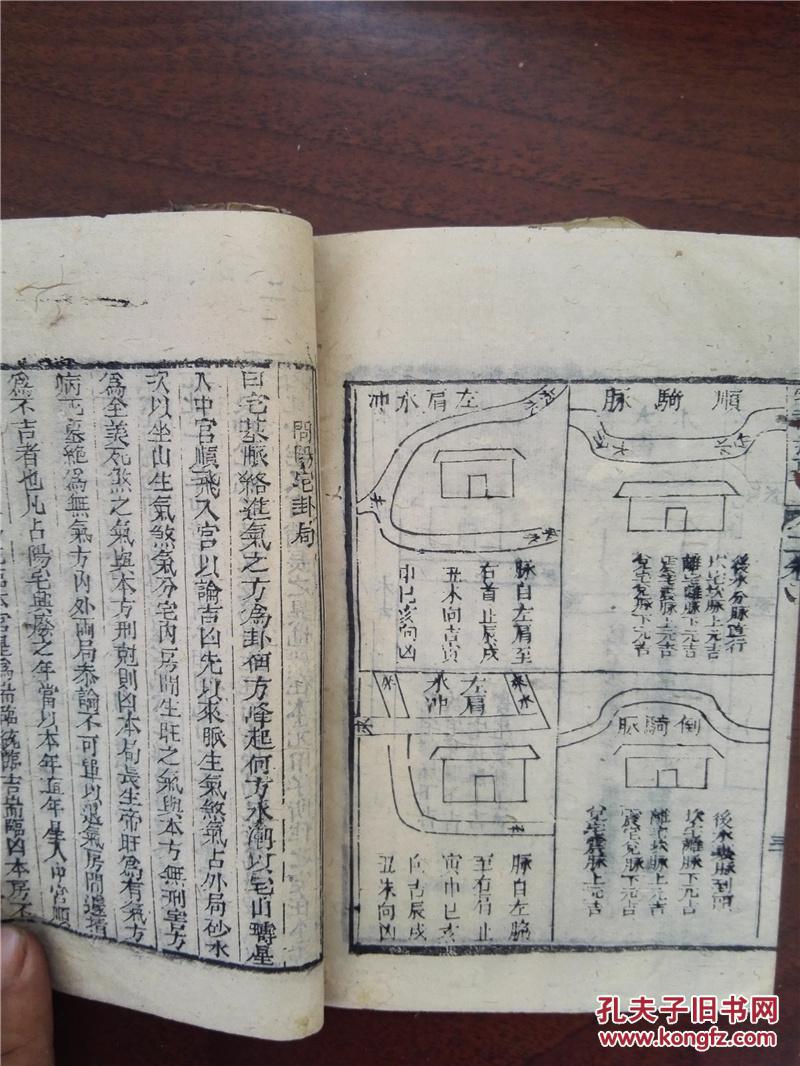 順騎脈
後水分脈直行
坎宅坎脈上元吉
離宅離脈下元吉
震宅震脈上元吉
兌宅兌脈下元吉
左肩水冲
水
水
脈自左肩至
右首止辰戌
丑未向吉寅
申巳亥向凶
倒騎脈
後水裹脈到頭
坎宅離脈下元吉
離宅坎脈上元吉
震宅兌脈下元吉
兌宅震脈上元吉
左肩
水冲
水
脈自左脇
至右肩止
寅申巳亥
向吉辰戌
丑未向凶
三
問陽宅卦局
曰宅基脈絡進氣之方為卦個方降起何方水潮以宅山疇星
入中宮順飛八宮以論吉凶先以來脈生氣煞氣占外局砂水
次以坐山生氣煞氣分宅內房間生旺之氣與本方無刑害方
為全美死煞之氣與本方刑剋則凶本局長生帝旺為有氣方
病死墓絕為無氣方內外兩局叅論不可單以退氣房間邊堵
為不吉者也凡占陽宅興廢之年當以本年直年星入中宮順
吉
凶本房不
孔夫子旧书网
www.kongfz.com